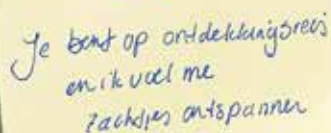 Je bent op ontdekkingsreis
en ik voel me
zachtjes ontspannen